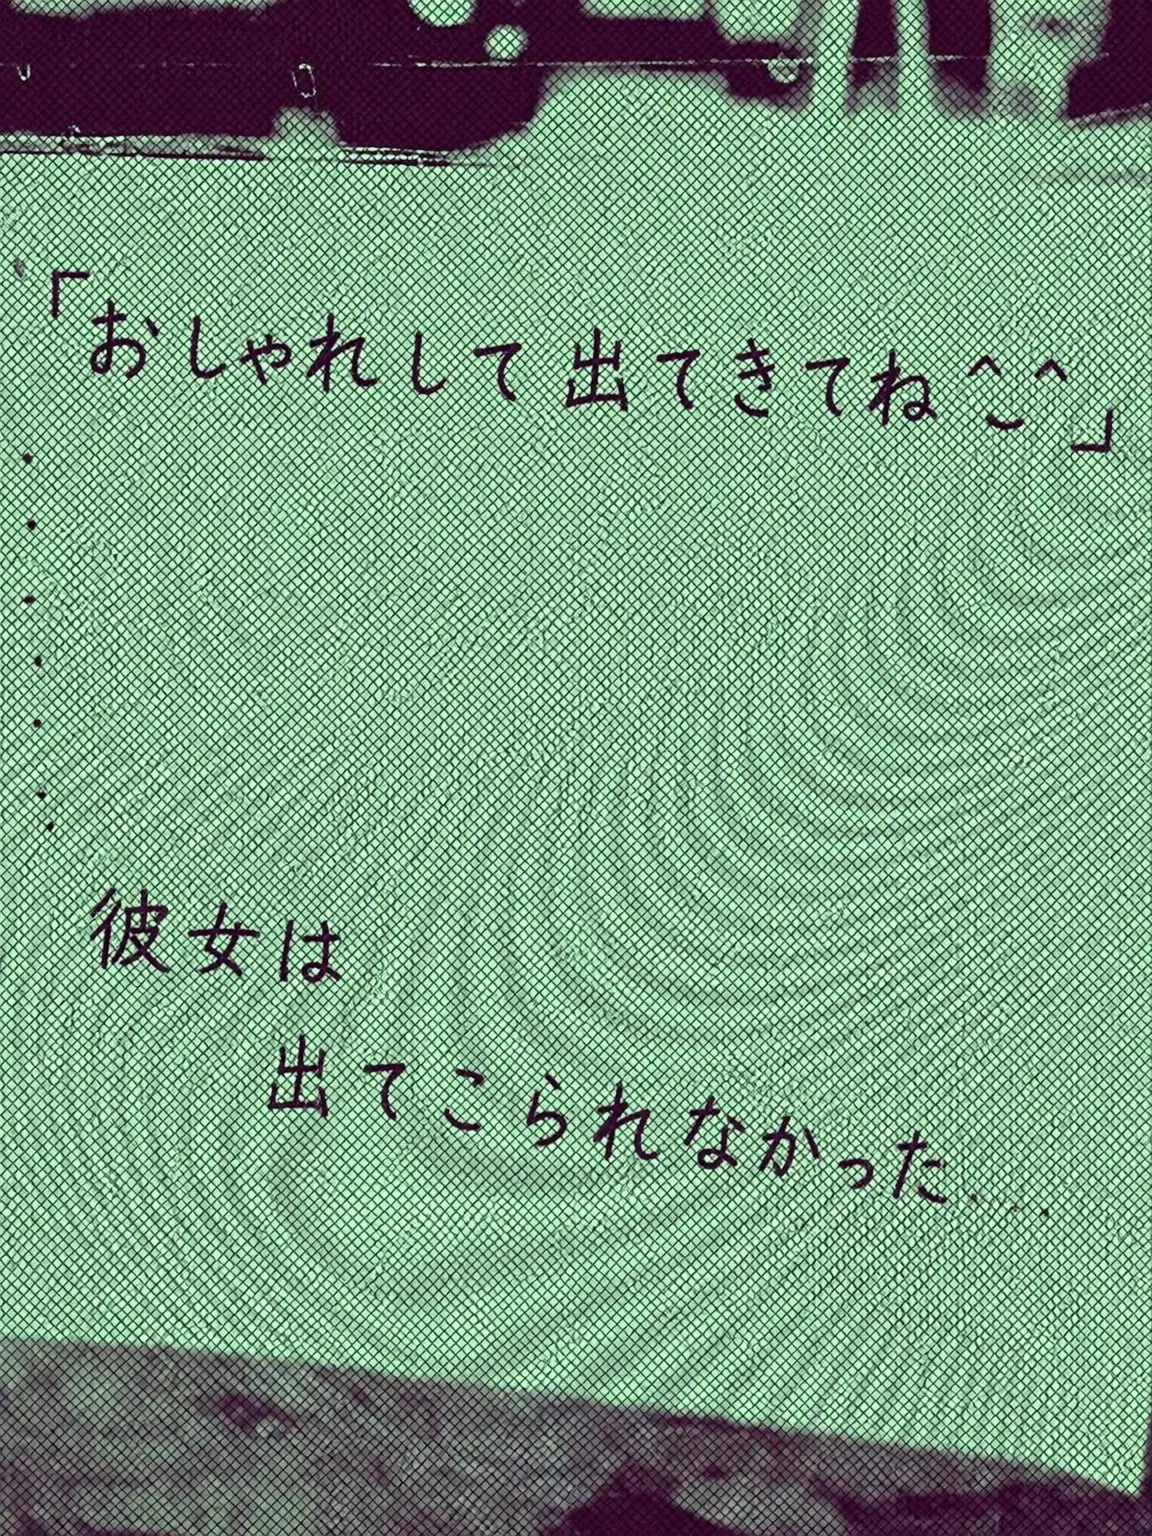 「おしゃれして出てきてね^‿^」
・・・・・・・
彼女は
出てこられなかった...